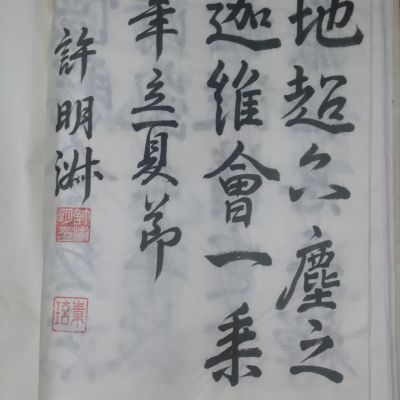 地超六塵之
迦維會一乘
年立夏節
許明淋